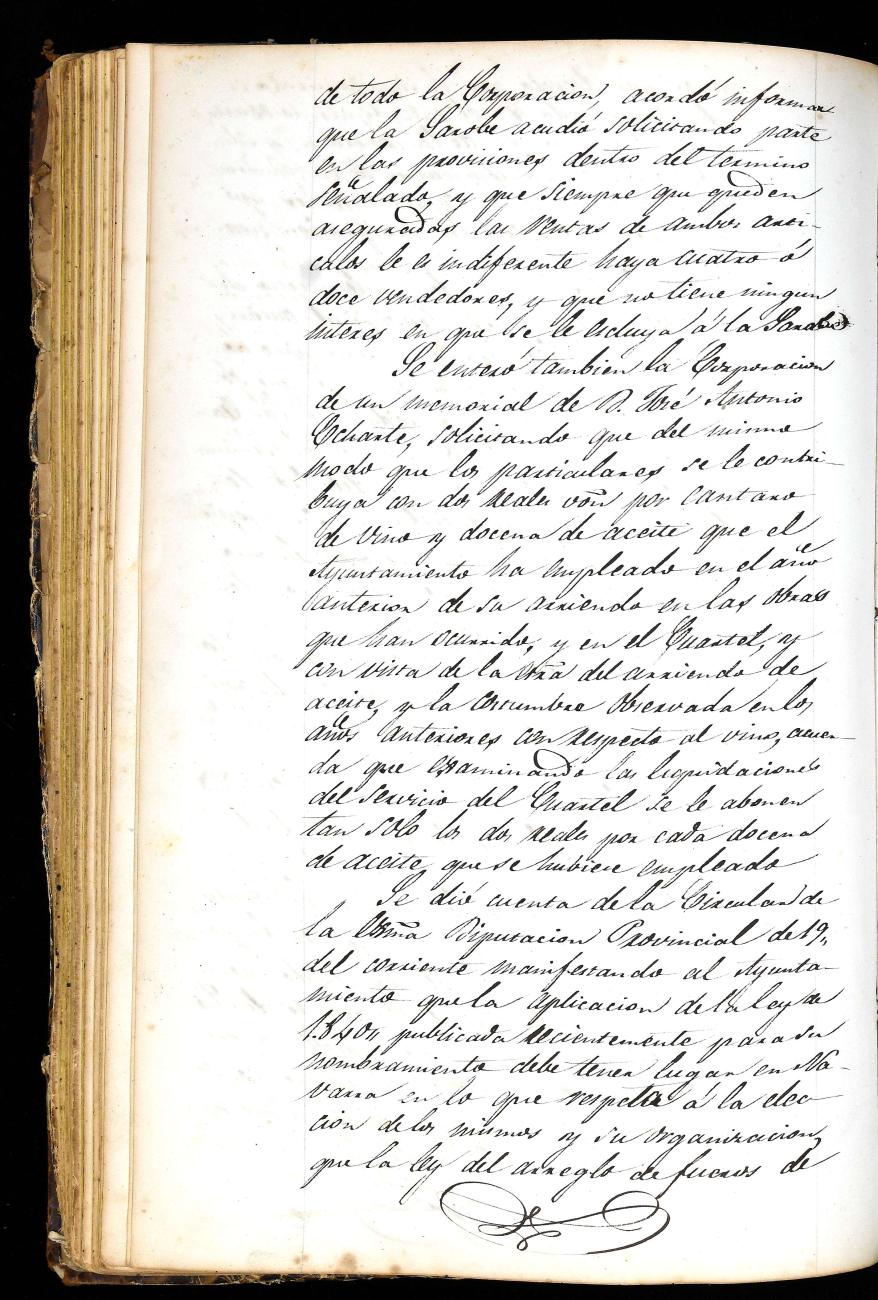 de todo la Corporacion, acordó informar
que la Sarobe acudió solicitando parte
en las provisiones dentro del termino
señalado, y que siempre que queden
aseguradas las ventas de ambos arti-
culos le es indiferente haya cuatro ó
doce vendedores, y que no tiene ningun
interes en que se le escluya á la Sarobe
Se enteró tambien la Corporacion
de un memorial de D. José Antonio
Ocharte, solicitando que del mismo
modo que los particulares se le contri-
buya con dos reales von por cantaro
de vino y docena de aceite que el
Ayuntamiento ha empleado en el año
anterior de su arriendo en las obras
que han ocurrido, y en el Cuartel, y
con vista de la del arriendo de
aceite, y la costumbre observada en los
años anteriores con respecto al vino, acuer-
da que examinando las liquidaciones
del servicio del Cuartel se le abonen
tan solo los dos reales por cada docena
de aceite que se hubiese empleado
Se dió cuenta de la Circular de
la Exma Diputacion Provincial de 19,,
del corriente manifestando al Ayunta-
miento que la aplicacion de la ley de
1.840,, publicada recientemente para su
nombramiento debe tener lugar en Na-
varra en lo que respeta á la elec-
cion de los mismos y su organizacion,
que la ley del arreglo de fueros de